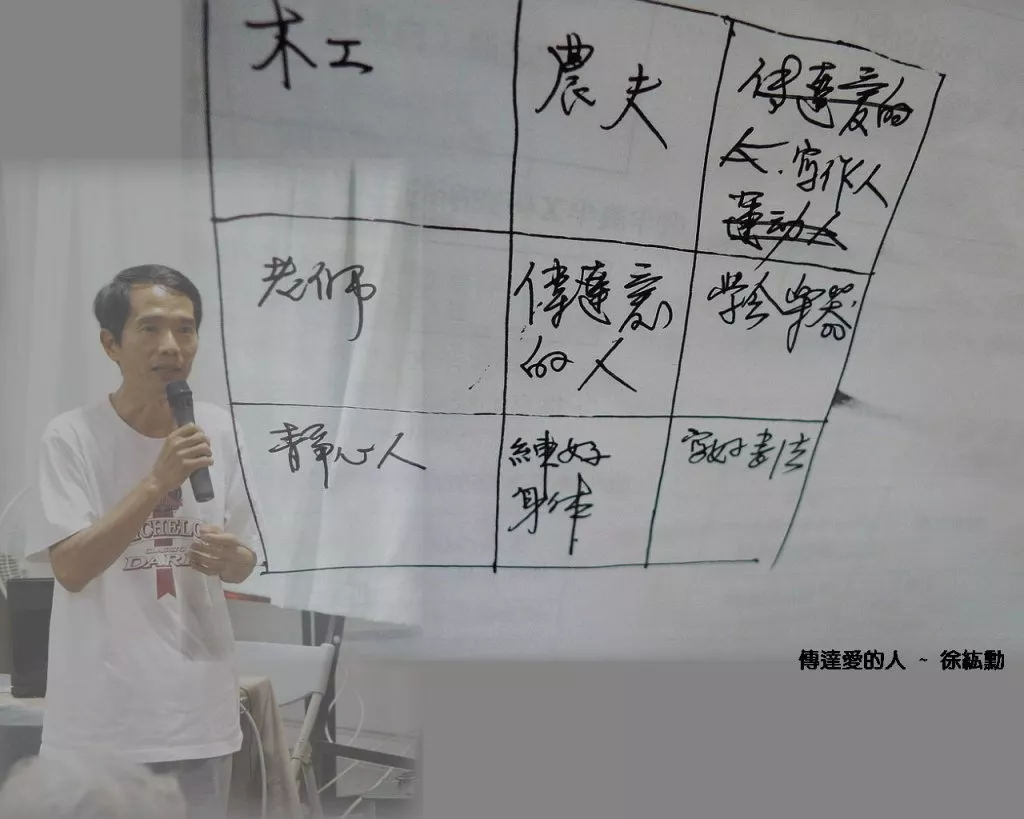 木工
農夫
傳達愛的
人.寫作人
運动人
老师
傳達愛
的人
学会樂器
靜心人
練好
身体
写好書法
DARK
傳達愛的人 ~ 徐紘勳